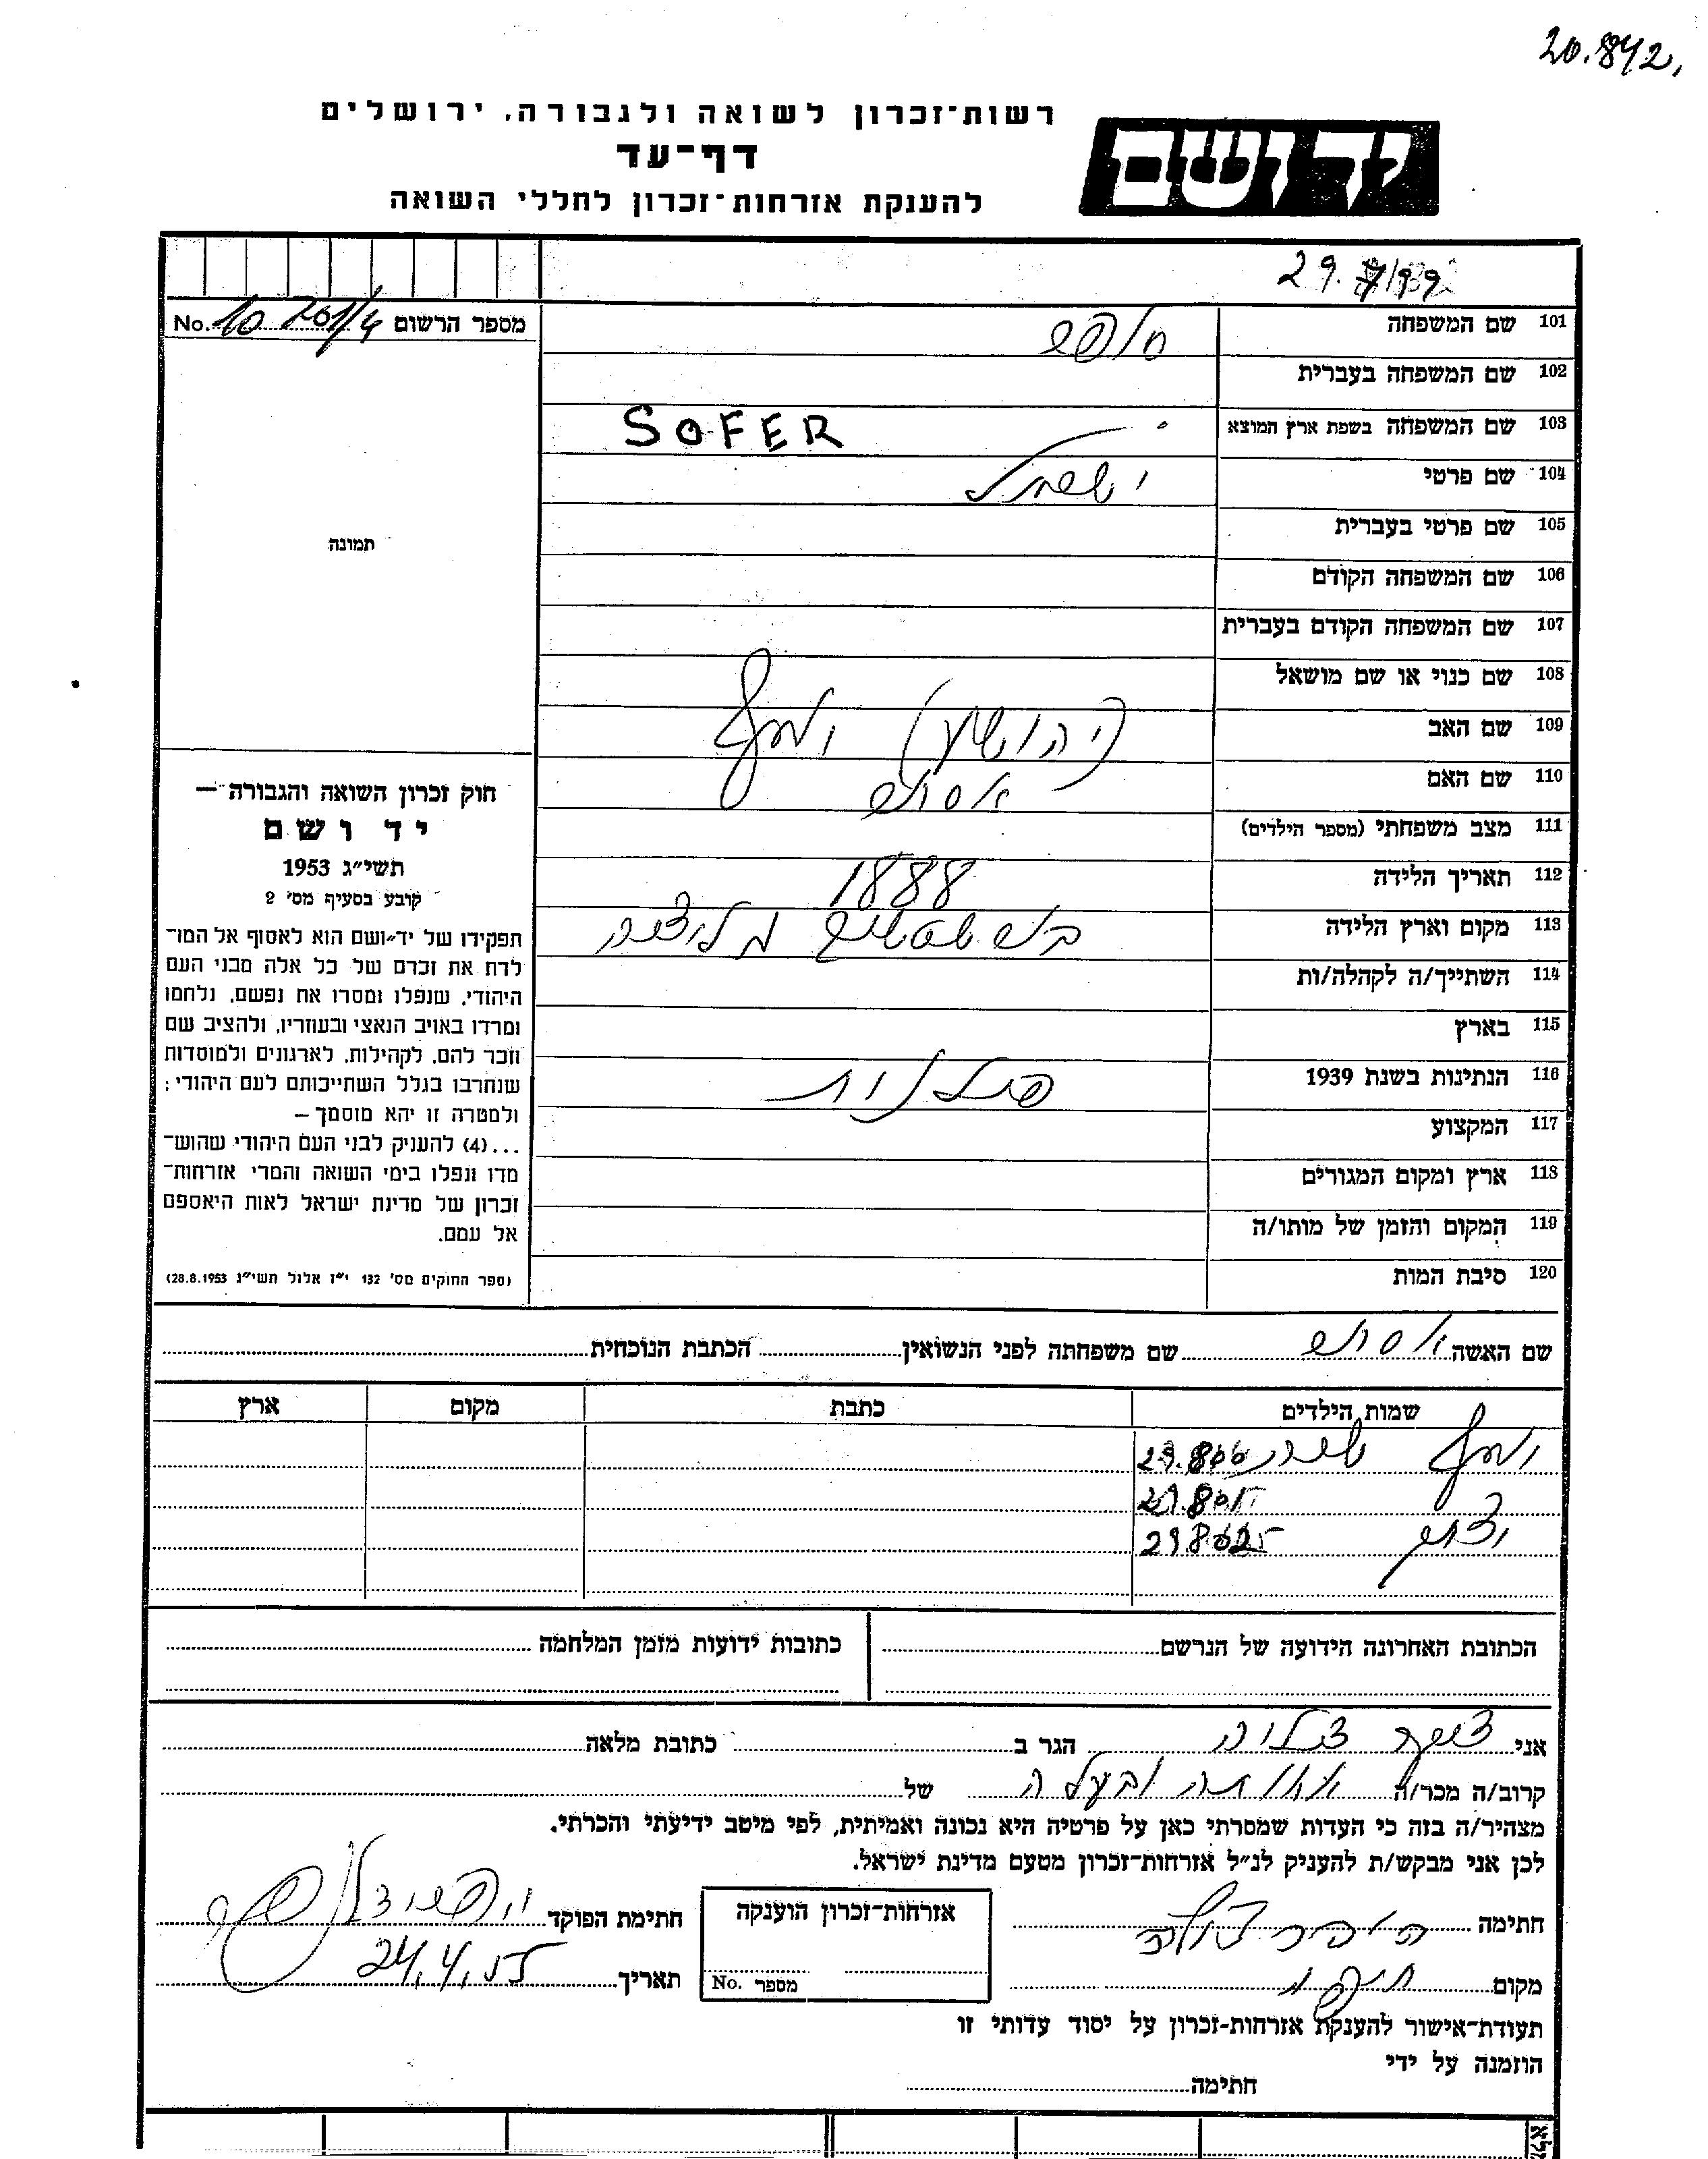 20.842,
רשות־זכרון לשואה ולגבורה, ירושלים
דף־עד
להענקת אזרחות־זכרון לחללי השואה
ידושם
29.
מספר הרשום No. 10 201/4
101 שם המשפחה סופר
102 שם המשפחה בעברית
103 שם המשפחה בשפת ארץ המוצא SOFER
104 שם פרטי ישראל
105 שם פרטי בעברית
106 שם המשפחה הקודם
107 שם המשפחה הקודם בעברית
108 שם כנוי או שם מושאל
109 שם האב (יהושע) יוסף
110 שם האם אסתר
111 מצב משפחתי (מספר הילדים)
112 תאריך הלידה 1888
113 מקום וארץ הלידה גליציה
114 השתייך/ה לקהלה/ות
115 בארץ
116 הנתינות בשנת 1939 פולנית
117 המקצוע
118 ארץ ומקום המגורים
119 המקום והזמן של מותו/ה
120 סיבת המות
תמונה
חוק זכרון השואה והגבורה —
יד ושם
תשי״ג 1953
קובע בסעיף מס׳ 2
תפקידו של יד־ושם הוא לאסוף אל המו־
לדת את זכרם של כל אלה מבני העם
היהודי, שנפלו ומסרו את נפשם, נלחמו
ומרדו באויב הנאצי ובעוזריו, ולהציב שם
וזכר להם, לקהילות, לארגונים ולמוסדות
שנחרבו בגלל השתייכותם לעם היהודי;
ולמטרה זו יהא מוסמך —
...(4) להעניק לבני העם היהודי שהוש־
מדו ונפלו בימי השואה והמרי אזרחות־
זכרון של מדינת ישראל לאות היאספם
אל עמם.
(ספר החוקים מס׳ 132 י״ז אלול תשי״ג 28.8.1953)
שם האשה אסתר שם משפחתה לפני הנשואין הכתבת הנוכחית
שמות הילדים כתבת מקום ארץ
יוסף
הכתובת האחרונה הידועה של הנרשם כתובות ידועות מזמן המלחמה
אני הגר ב כתובת מלאה
קרוב/ה מכר/ה אחותה ובעלה של
מצהיר/ה בזה כי העדות שמסרתי כאן על פרטיה היא נכונה ואמיתית, לפי מיטב ידיעתי והכרתי.
לכן אני מבקש/ת להעניק לנ״ל אזרחות־זכרון מטעם מדינת ישראל.
חתימה אזרחות־זכרון הוענקה חתימת הפוקד
מקום חיפה מספר No. תאריך 24.4.55
תעודת־אישור להענקת אזרחות־זכרון על יסוד עדותי זו
הוזמנה על ידי
חתימה